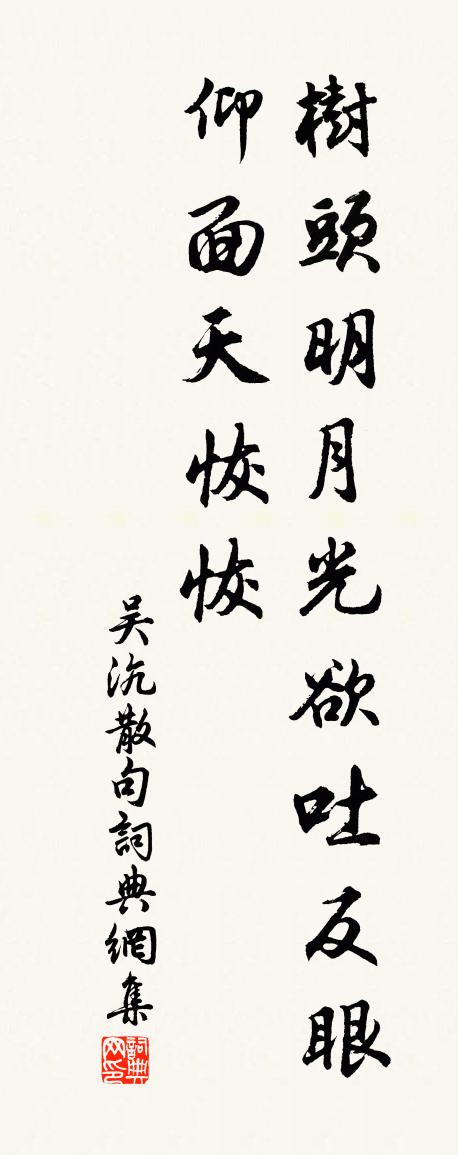 樹頭明月光欲吐反眼
仰面天恢恢
吴沆散句詞典網集
詞典网印